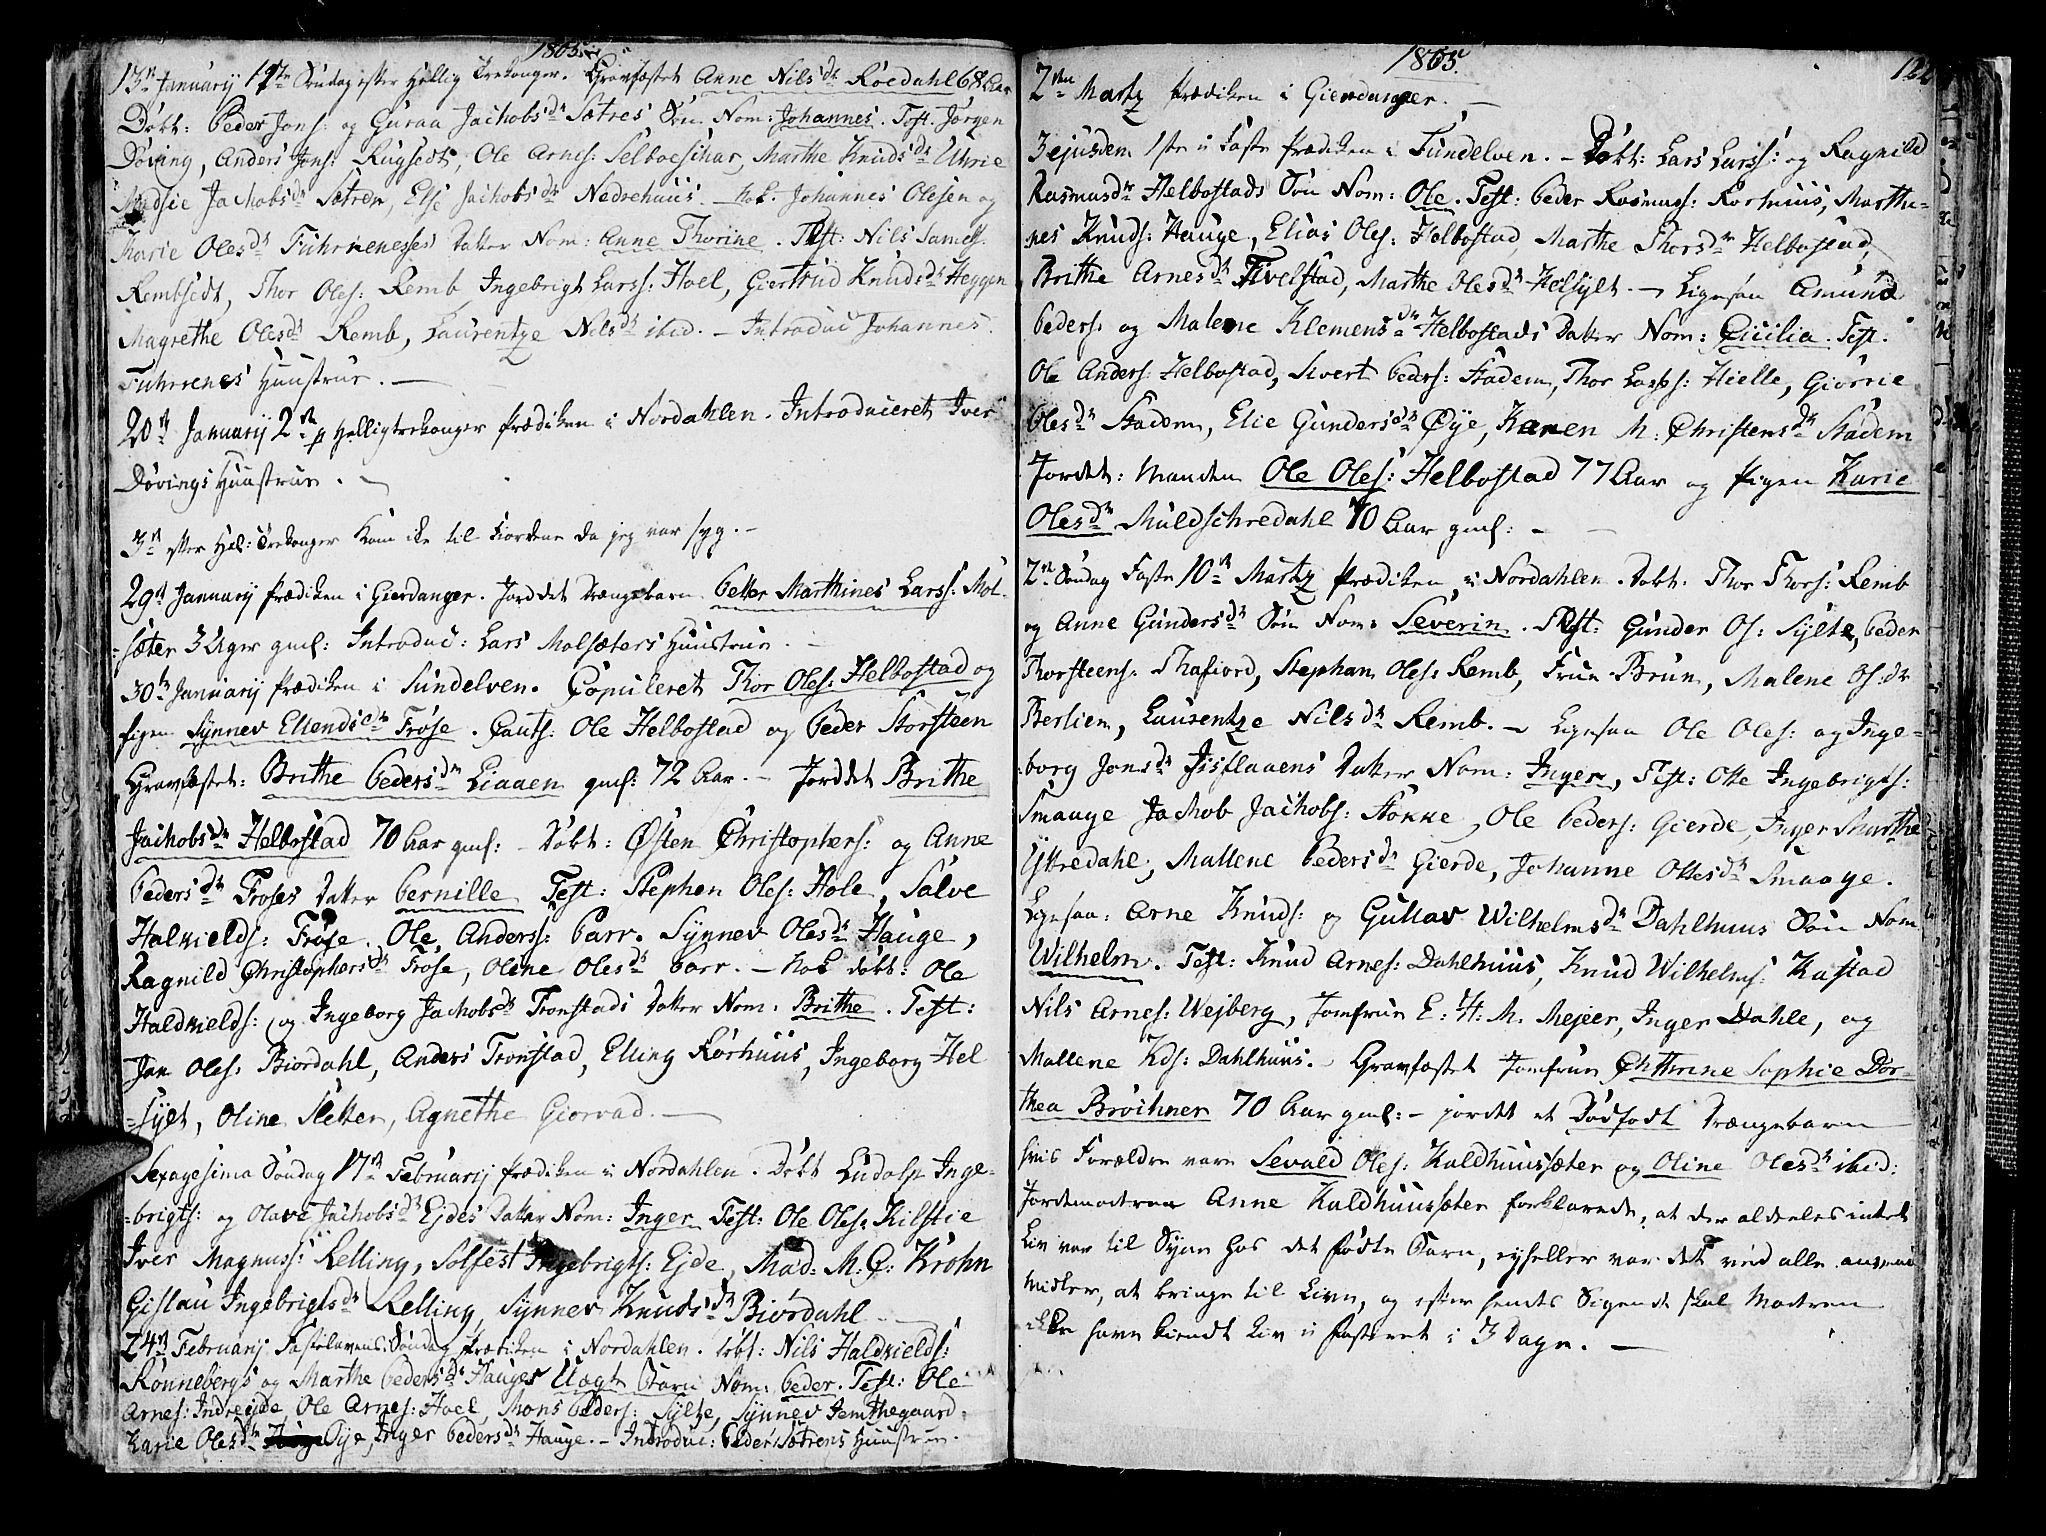 1805
13de Januarij 1ste Søndag efter Hellig Trekonger. Gravfæstet Anne Nilsdr Roedahl 68 Aar
Døbt: Peder Jons: og Guraa Jachobsdr Sætres Søn Nom: Johannes. Test. Jørgen
Døving, Anders Jons: Rugsedt, Ole Arnes: Selboeschar, Marthe Knudsdr Uhrie
Jachobsdr Sætren, Else Jachobsdr Nedrehuus. Nok. Johannes Olesen og
Marie Olesdr Fuhrnenesses Datter Nom: Anne Thorine. Test: Nils Samels.
Rembsedt, Thor Oles: Remb, Ingebrigt Larss: Hoel, Giertrud Knudsdr Heggen
Magrethe Olesdr Remb, Laurentze Nilsdr ibid. – Introduc Johannes
Fuhrenes Huustrue. –
20de Januarij 2de p Helligtrekonger Prædiken i Nordahlen. Introduceret Iver
Døvings Huustrue. –
3de efter Hel: Trekonger kom ike til Fiordene da jeg var syg. –
29de Januarij Prædiken i Gierdanger. Jorddet Drængebarn Petter Marthines Larss: Mol-
sæter 3 Uger gml: Introduc: Lars Molsæters Huustrue. –
30te Januarij Prædiken i Sundelven. Copuleret Thor Oles: Helbostad og
Pigen Synnev Ellendsdr Frøse. Cauts: Ole Helbostad og Peder Korsteen
Gravfæstet: Brithe Pedersdr Liaaen gml: 72 Aar. – Jorddet Brithe
Jachobsdr Helbostad 70 Aar gml: – Døbt: Østen Christophers: og Anne
Pedersdr Froses Datter Pernille Test: Stephen Oles: Hole, Salve
Halkields: Frøse. Ole Anderss: Parr. Synnev Olesdr Hauge,
Ragnild Christophersdr Frøse, Oline Olesdr Parr. – Nok døbt: Ole
Haldkields: og Ingeborg Jachobsdr Tronstads Datter Nom. Brithe. Test:
Jon Oles. Biordahl, Anders Tronstad, Elling Korhuus, Ingeborg Hel
-sylt, Oline Sletten, Agnethe Giorvad. –
Sexagesima Søndag 17de Februarij Prædiken i Nordahlen. Døbt Ludolp Inge-
-brigts: og Olave Jachobsdr Ejdes Datter Nom: Inger Test: Ole Oles: Kilstie
Iver Magnuss: Relling, Solfest Ingebrigts: Ejde, Mad: M. C: Krohn
Gislau Ingebrigtsdr Relling, Synnev Knudsdr Biørdahl
24de Februarij Fastelavens Søndag Prædiken i Nordahlen. Døbt: Nils Haldkields:
Rønnebergs og Marthe Pedersdr Hauges Uægte Barn Nom: Peder. Test: Ole
Arnes: Indreejde Ole Arnes: Hoel, Mons Peders: Sylte, Synnev Jemthegaard.
Karie Olesdr Øije, Inger Pedersdr Hauge. – Introduc: Peder Sætrens Huustrue.
1805
122
2den Martz Prædiken i Gierdanger. –
3 ejusdem 1ste i Faste Prædiken i Sundelven. – Døbt: Lars Larss: og Ragnild
Rasmusdr Helbostads Søn Nom: Ole. Test: Peder Rasmuss: Korhuus, Marthi-
nes Knuds: Hauge, Elias Oles: Helbostad, Marthe Thorsdr Helbostad,
Brithe Arnesdr Tivelstad, Marthe Olesdr Helsylt. – Ligesaa Amund
Peders. og Malene Klemensdr Helbostads Datter Nom: Cicilia. Test.
Ole Anders: Helbostad, Sivert Peders: Stadem, Thor Larss: Hielle, Giørrie
Olesdr Stadem, Elie Gundersdr Øye, Karen M: Christensdr Stadem
Jordet: Manden Ole Oles: Helbostad 77 Aar og Pigen Karie
Olesdr Muldschredahl 70 Aar gml: –
2den Søndag Faste 10de Martz Prædiken i Nordahlen. Døbt: Thor Thors: Remb
og Anne Gundersdr Søn Nom: Severin. Test: Gunder Os: Sylte, Peder
Thorsteens: Thafiord, Stephan Oles: Remb, Frue Brun, Malene Os:dr
Berlien, Laurentze Nilsdr Remb. – Ligesaa Ole Oles: og Inge-
-borg Jonsdr Jisflaaens Datter Nom: Inger, Test: Otte Ingebrigts:
Smaage Jachob Jachobs: Stokke, Ole Peders: Gierde, Inger Marthe
Yttredahl, Mallene Pedersdr Gierde, Johanne Ottesdr Smaage.
Ligesaa: Arne Knuds: og Gullav Wilhelmsdr Dahlhuus Søn Nom
Wilhelm. Test: Knud Arnes: Dahlhuus, Knud Wilhelms: Kastad
Nils Arnes: Wejberg, Jomfrue E: H: M. Mejer, Inger Dahle, og
Mallene Kds: Dahlhuus. Gravfæstet Jomfrue Chthrine Sophie Dor-
thea Brochner 70 Aar gml: – jordet et Dødfødt Drængebarn
hvis Forældre vare Sevald Oles: Kaldhuussæter og Oline Olesdr ibid:
Jordemodren Anne Kaldhuussæter forklarede, at der aldeles intet
Liv var til Syne hos det fødte Barn, ejheller var det ved alle anvendte
Midler, at bringe til Live, og efter hendes Sigende skal Modren
ikke have kiendt Liv i Fosteret i 3 Dage. –